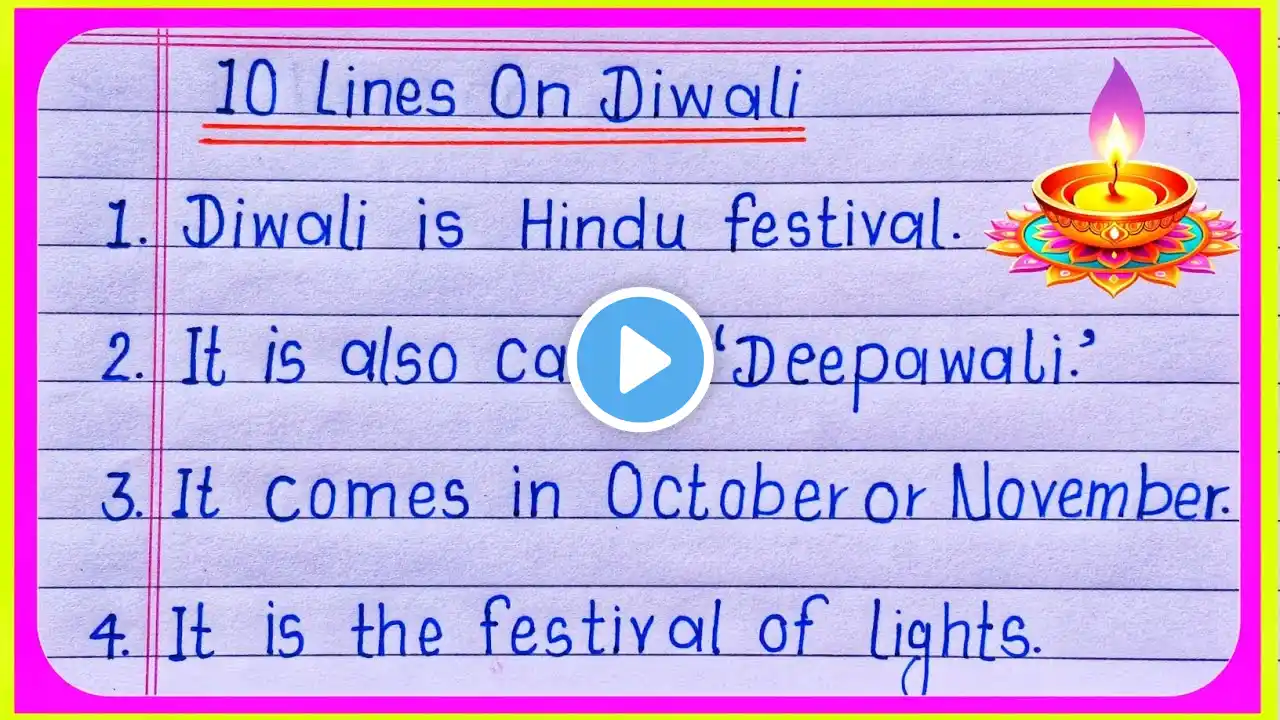 10 Lines On Diwali
1. Diwali is Hindu festival.
2. It is also 'Deepawali.'
3. It comes in October or November.
4. It is the festival of lights.